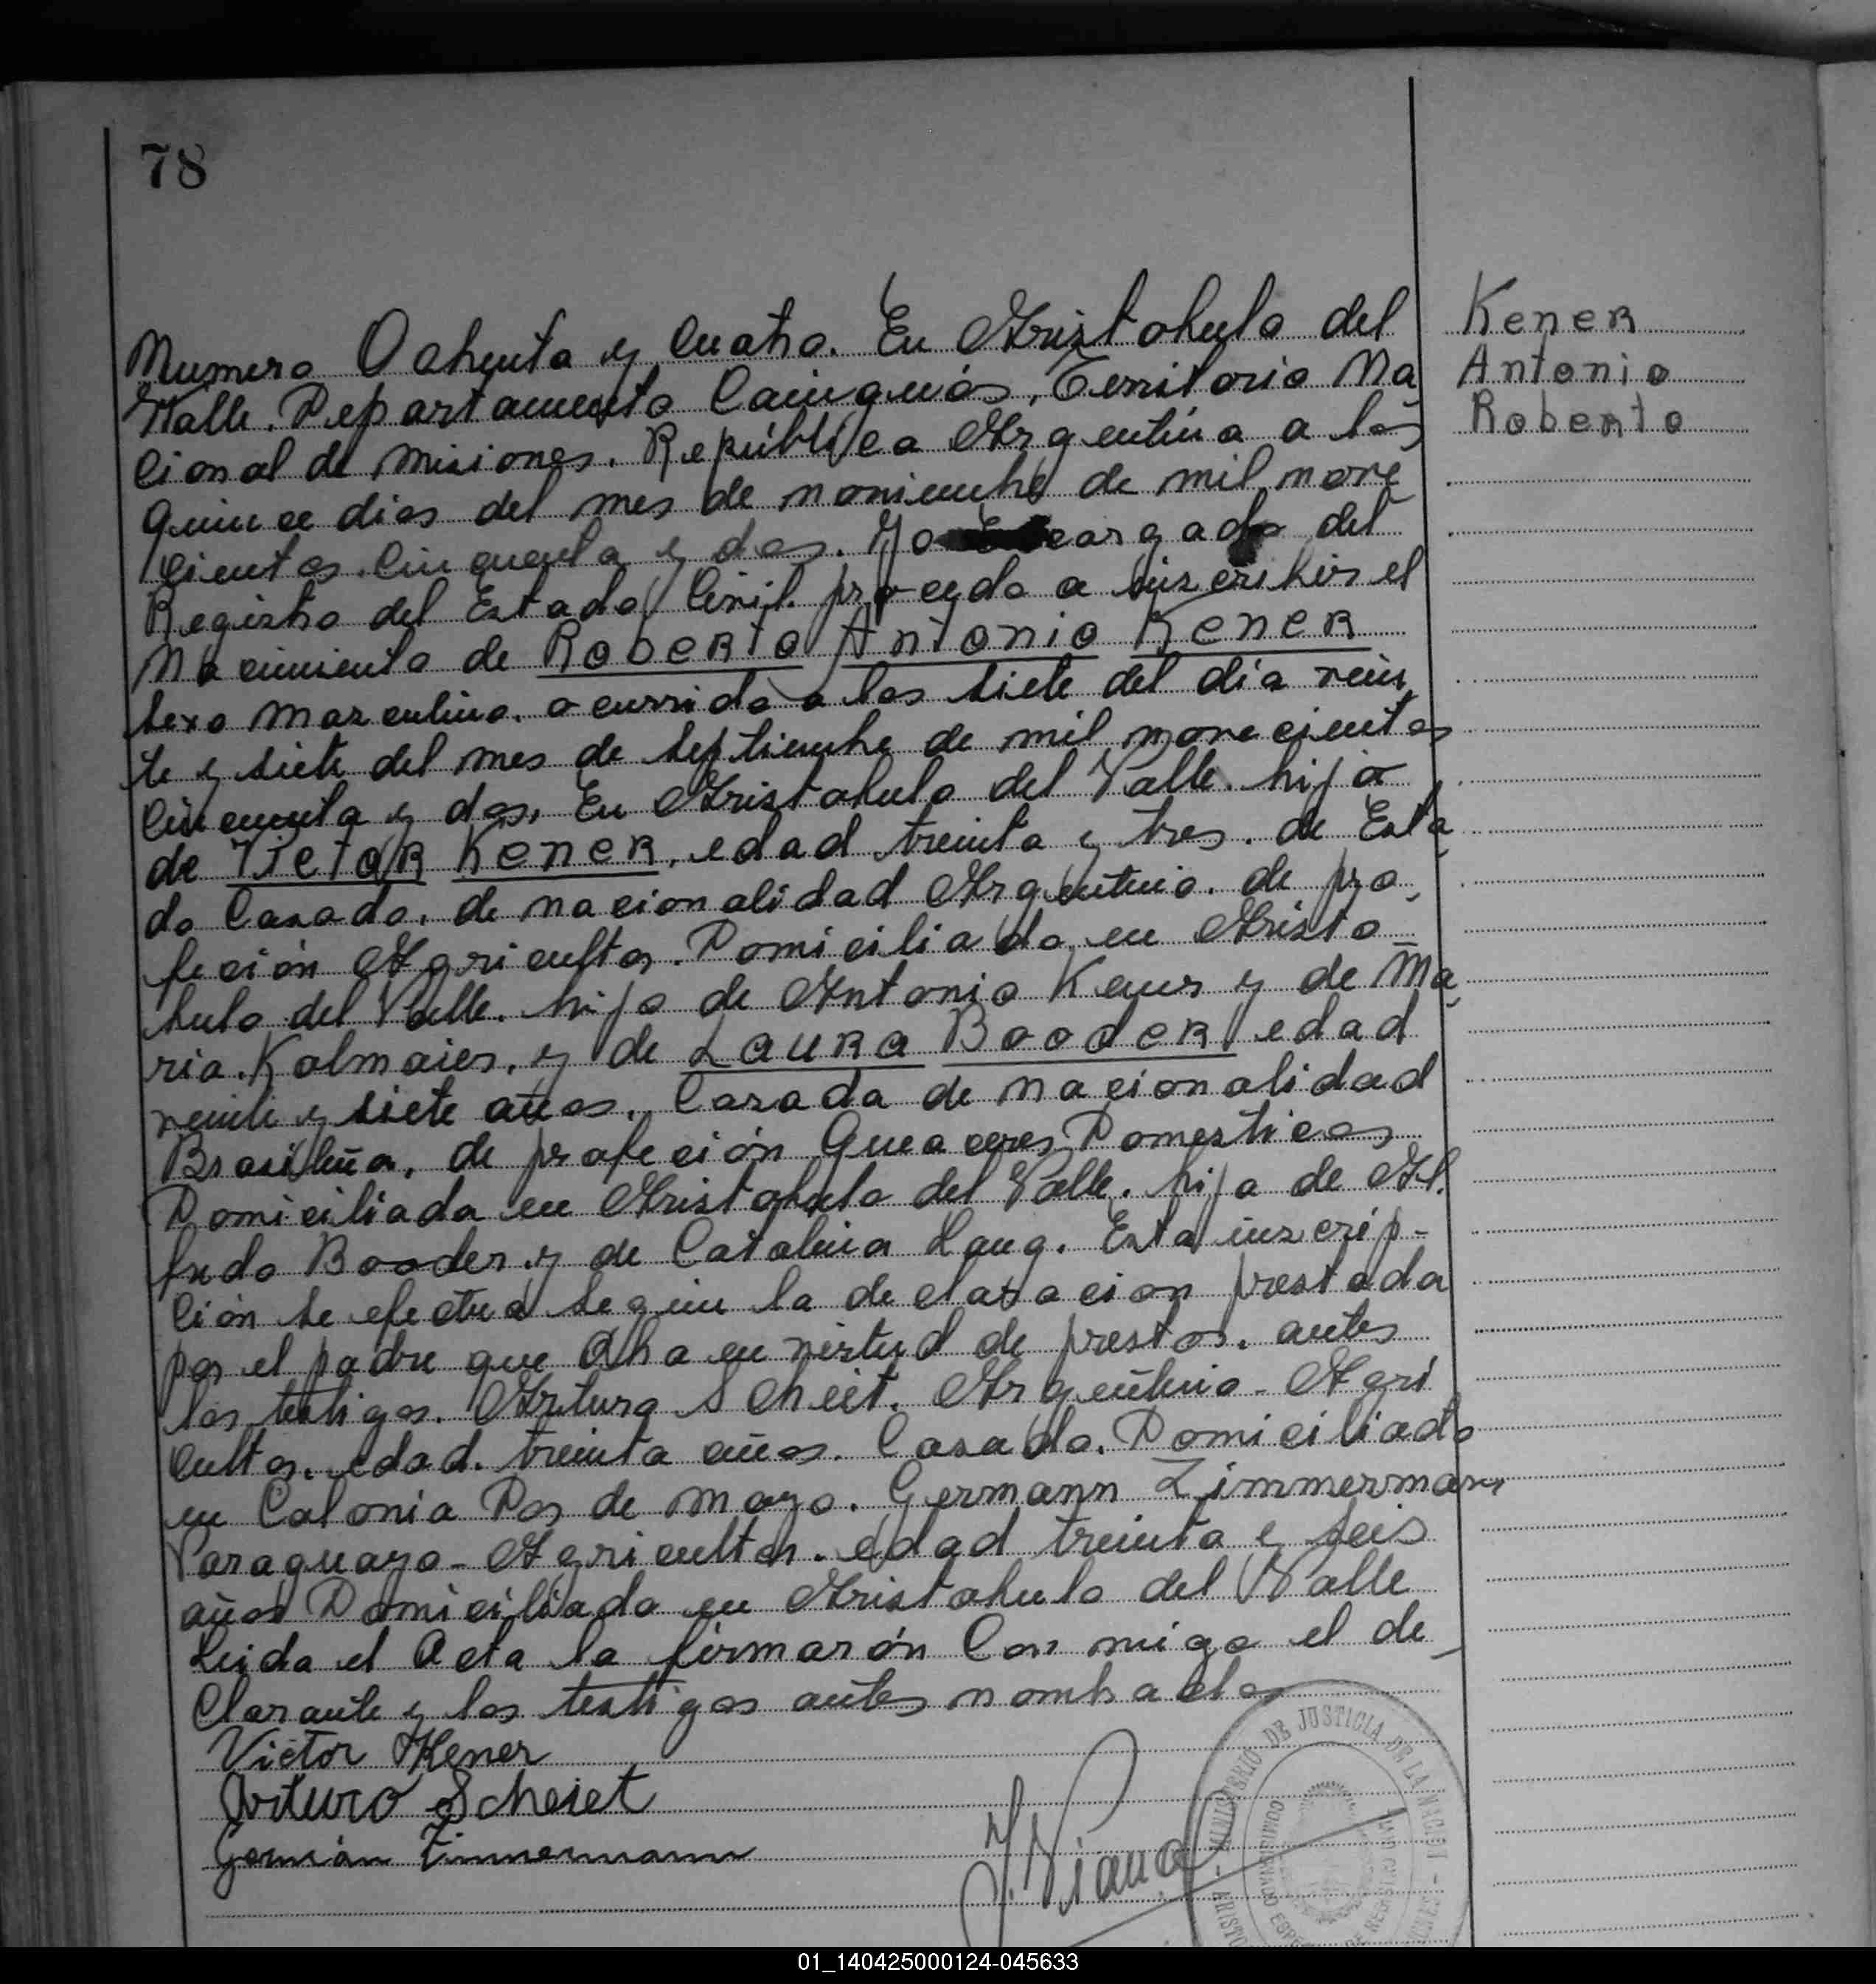 78
Kener
Antonio
Roberto
Numero Ochenta y Cuatro. En Aristobulo del
Valle. Departamento Cainguás, Territorio Na
cional de Misiones. República Argentina a los
quince dias del mes de noviembre de mil nove
cientos. Cincuenta y dos. Yo Encargado del
Registro del Estado Civil. procedo a inscribir el
Nacimiento de Roberto Antonio Kener
sexo Masculino. ocurrido a las siete del día vein
te y siete del mes de septiembre de mil novecientos
Cincuenta y dos. En Aristobulo del Valle. hijo
de Victor Kener, edad treinta y tres. de Esta
do Casado. de nacionalidad Argentino. de pro
feción Agricultor. Domiciliado en Aristo
bulo del Valle. hijo de Antonio Kener y de Ma
ria. Kolmaier. y de Laura Booder edad
veinte y siete años. Casada de nacionalidad
Brasileña. de profeción Queaceres Domesticos
Domiciliada en Aristobulo del Valle. hija de Al.
fredo Booder y de Catalina Laug. Esta inscrip-
ción se efectua segun la declaracion prestada
por el padre que obra en virtud de prestos. antes
los testigos. Arturo Scheit. Argentino - Agri
cultor. edad. treinta años. Casado. Domiciliado
en Colonia Dos de Mayo. Germann Zimmermann
Paraguayo - Agricultor. edad treinta y seis
años Domiciliado en Aristobulo del Valle
Leida el Acta la firmarón Con migo el de
clarante y los testigos antes nombrados
Victor Kener
Arturo Scheiet
Germán Zimmermann
J. Viana
MINISTERIO DE JUSTICIA DE LA NACION
01_140425000124-045633